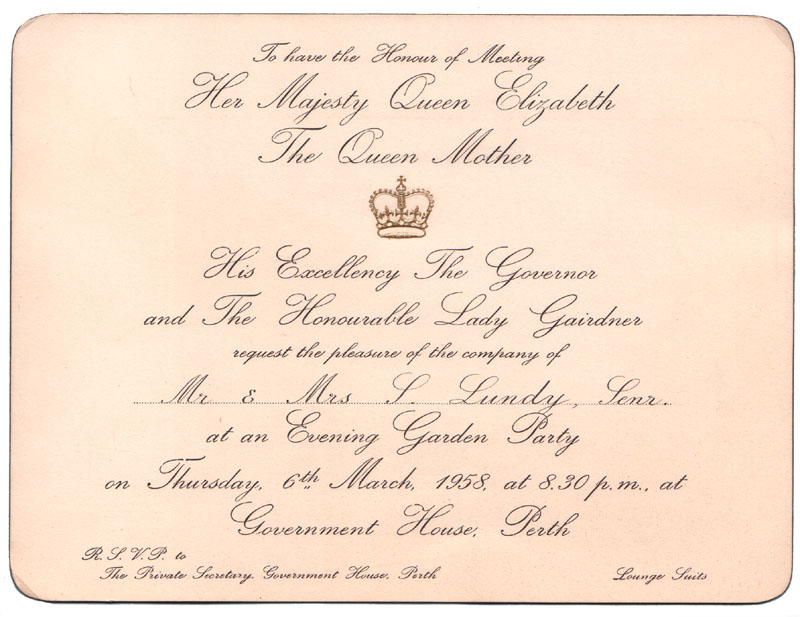 To have the Honour of Meeting
Her Majesty Queen Elizabeth
The Queen Mother
His Excellency The Governor
and The Honourable Lady Gairdner
request the pleasure of the company of
Mr & Mrs S. Lundy, Senr.
at an Evening Garden Party
on Thursday, 6th March, 1958, at 8.30 p.m., at
Government House, Perth
R.S.V.P. to
The Private Secretary, Government House, Perth
Lounge Suits